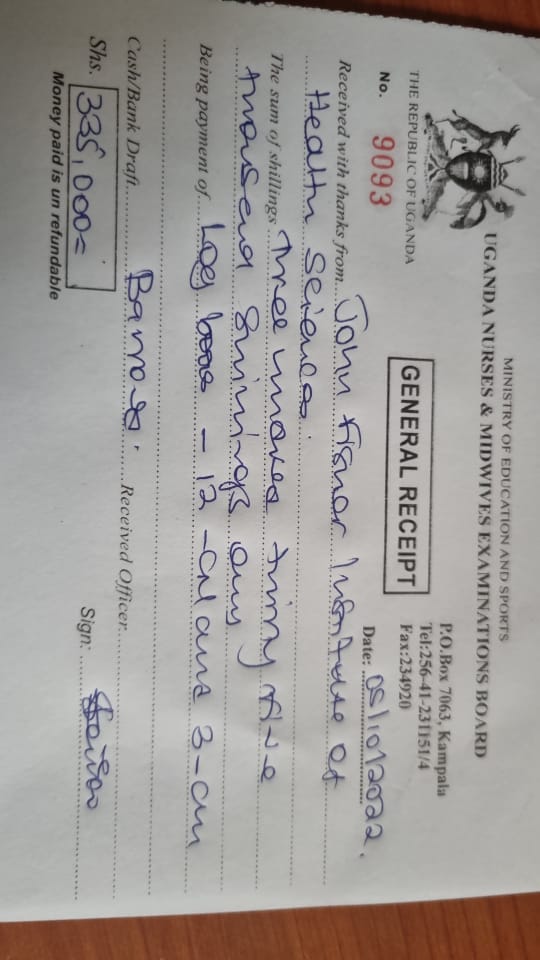 MINISTRY OF EDUCATION AND SPORTS
UGANDA NURSES & MIDWIVES EXAMINATIONS BOARD
P.O.Box 7063, Kampala
Tel:256-41-231151/4
Fax:234920
THE REPUBLIC OF UGANDA
GENERAL RECEIPT
No. 9093
Date: 05/10/2022.
Received with thanks from John Fisher Institute of
Health Sciences.
The sum of shillings Three hundred thirty five
thousand shillings only
Being payment of Log books - 12 - CM and 3 - CN
Cash/Bank Draft Received Officer
Shs. 335,000=
Sign:
Money paid is un refundable